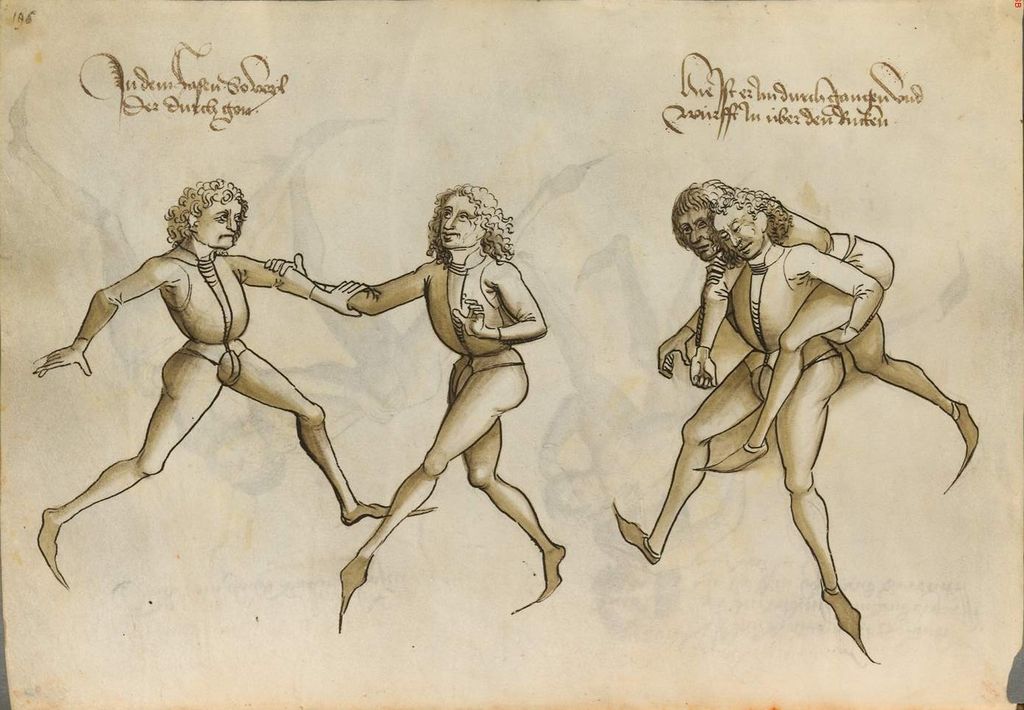 196
In dem lasen So wyl
der durch gon
hie ist er Im durch gangen und
würfft In über den Rucken